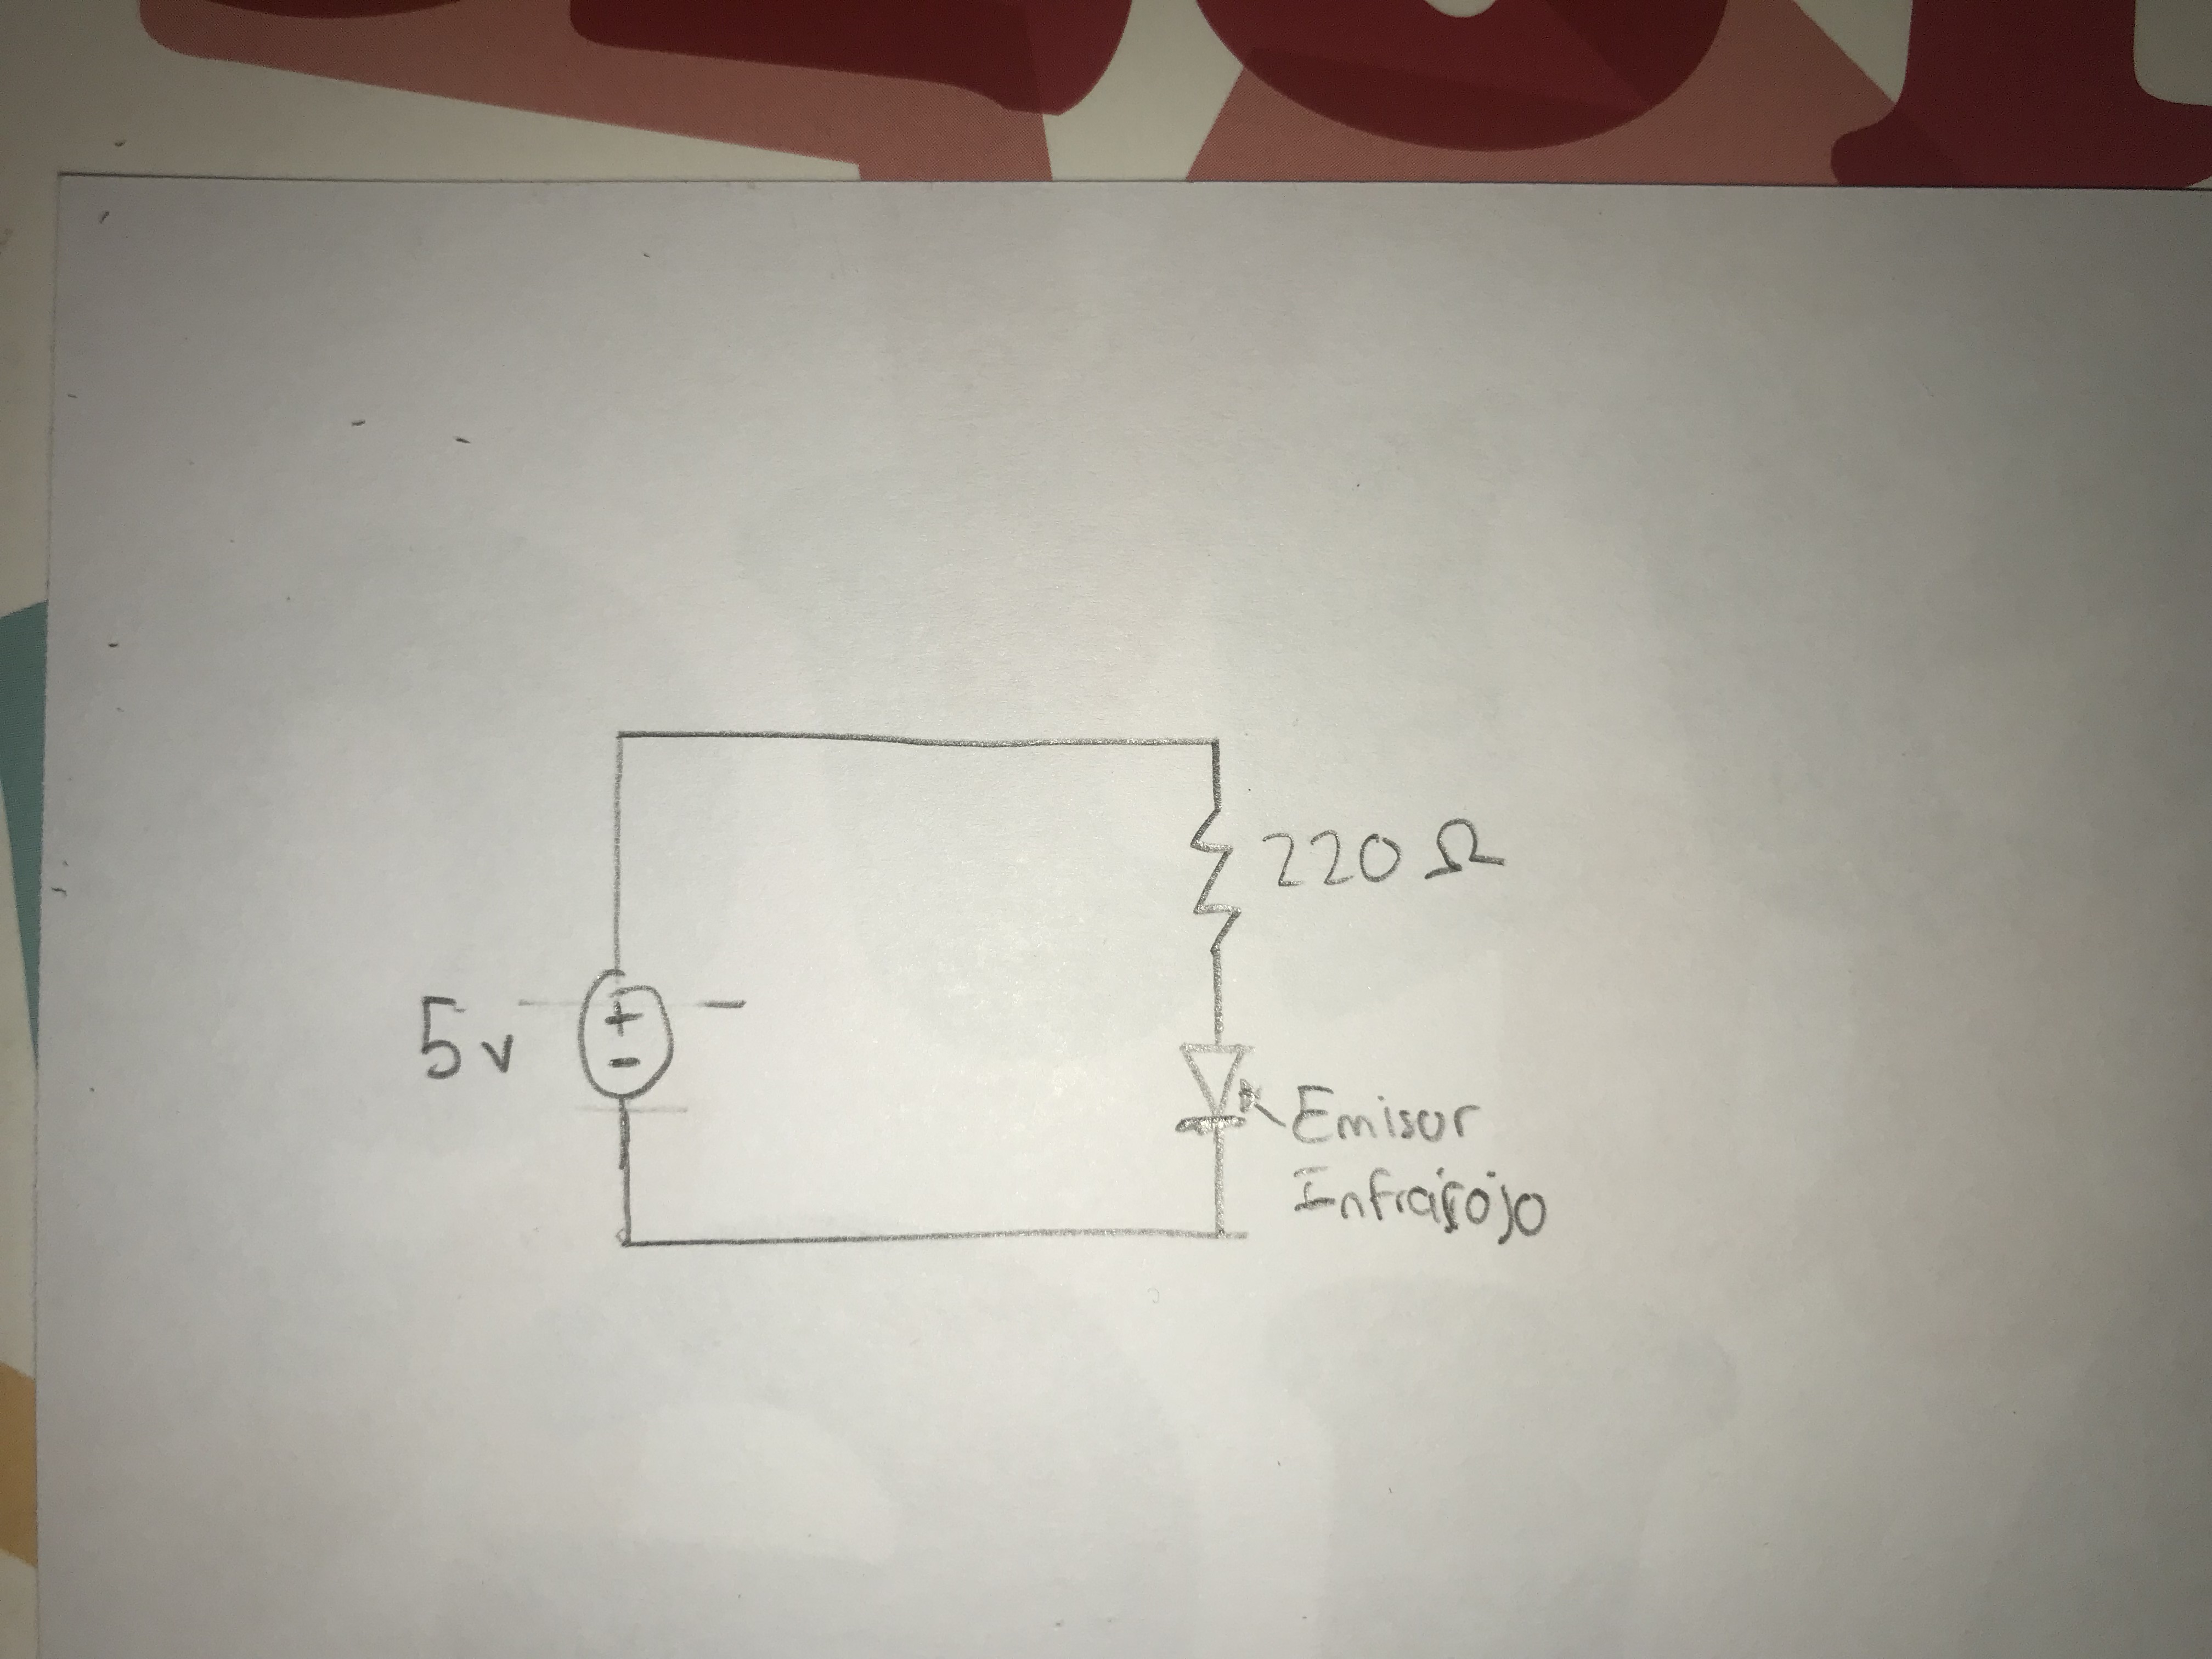 220 Ω
5v
+
-
Emisor
Infrarojo